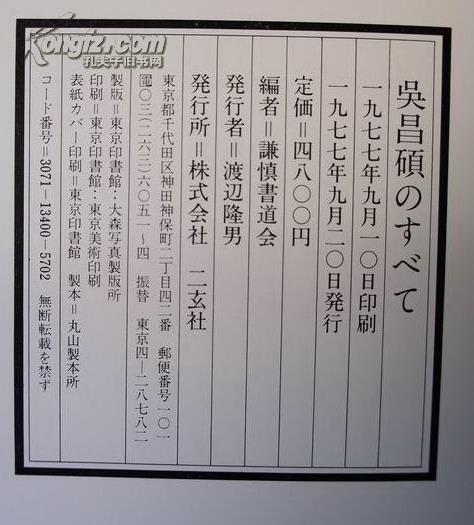 Kongfz.com
孔夫子旧书网
吳昌碩のすべて
一九七七年九月一〇日印刷
一九七七年九月二〇日発行
定価＝四八〇〇円
編者＝謙慎書道会
発行者＝渡辺隆男
発行所＝株式会社 二玄社
東京都千代田区神田神保町二丁目四二番 郵便番号一〇一
電〇三（二六三）六〇五一〜四 振替 東京四—二八七八二
製版＝東京印書館：大森写真製版所
印刷＝東京印書館：東京美術印刷
表紙カバー印刷＝東京印書館 製本＝丸山製本所
コード番号＝3071－13400－5702 無断転載を禁ず